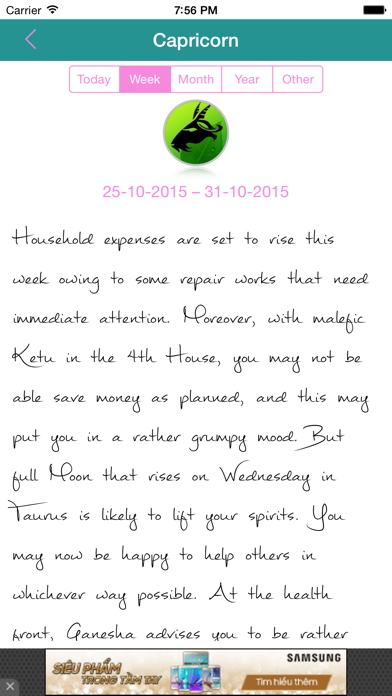 Carrier 7:56 PM
Capricorn
Today Week Month Year Other
25-10-2015 – 31-10-2015
Household expenses are set to rise this
week owing to some repair works that need
immediate attention. Moreover, with malefic
Ketu in the 4th House, you may not be
able save money as planned, and this may
put you in a rather grumpy mood. But
full Moon that rises on Wednesday in
Taurus is likely to lift your spirits. You
may now be happy to help others in
whichever way possible. At the health
front, Ganesha advises you to be rather
SIÊU PHẨM
TRONG TẦM TAY
SAMSUNG
Tìm hiểu thêm